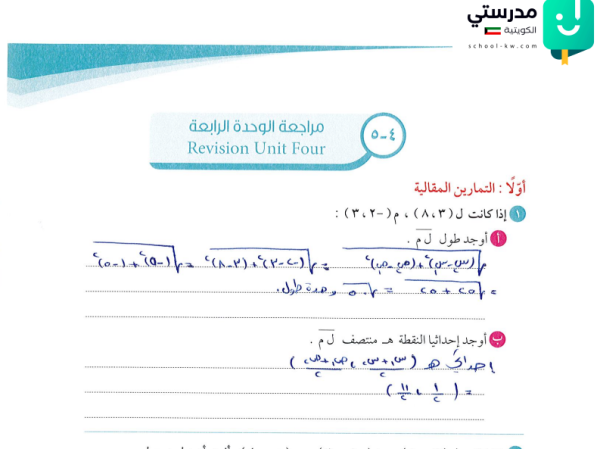 مدرستي
الكويتية
school-kw.com
٤-٥
مراجعة الوحدة الرابعة
Revision Unit Four
أوّلًا : التمارين المقالية
١ إذا كانت ل (٨،٣) ، م (-٣،٢) :
أ أوجد طول ل م .
√(س٢-س١)²+(ص٢-ص١)² = √(-٢-٣)²+(٣-٨)² = √(-٥)²+(-٥)²
= √٢٥+٢٥ = √٥٠ وحدة طول.
ب أوجد إحداثيا النقطة هـ منتصف ل م .
هـ (س١+س٢/٢ ، ص١+ص٢/٢)
= (١/٢ ، ١١/٢)